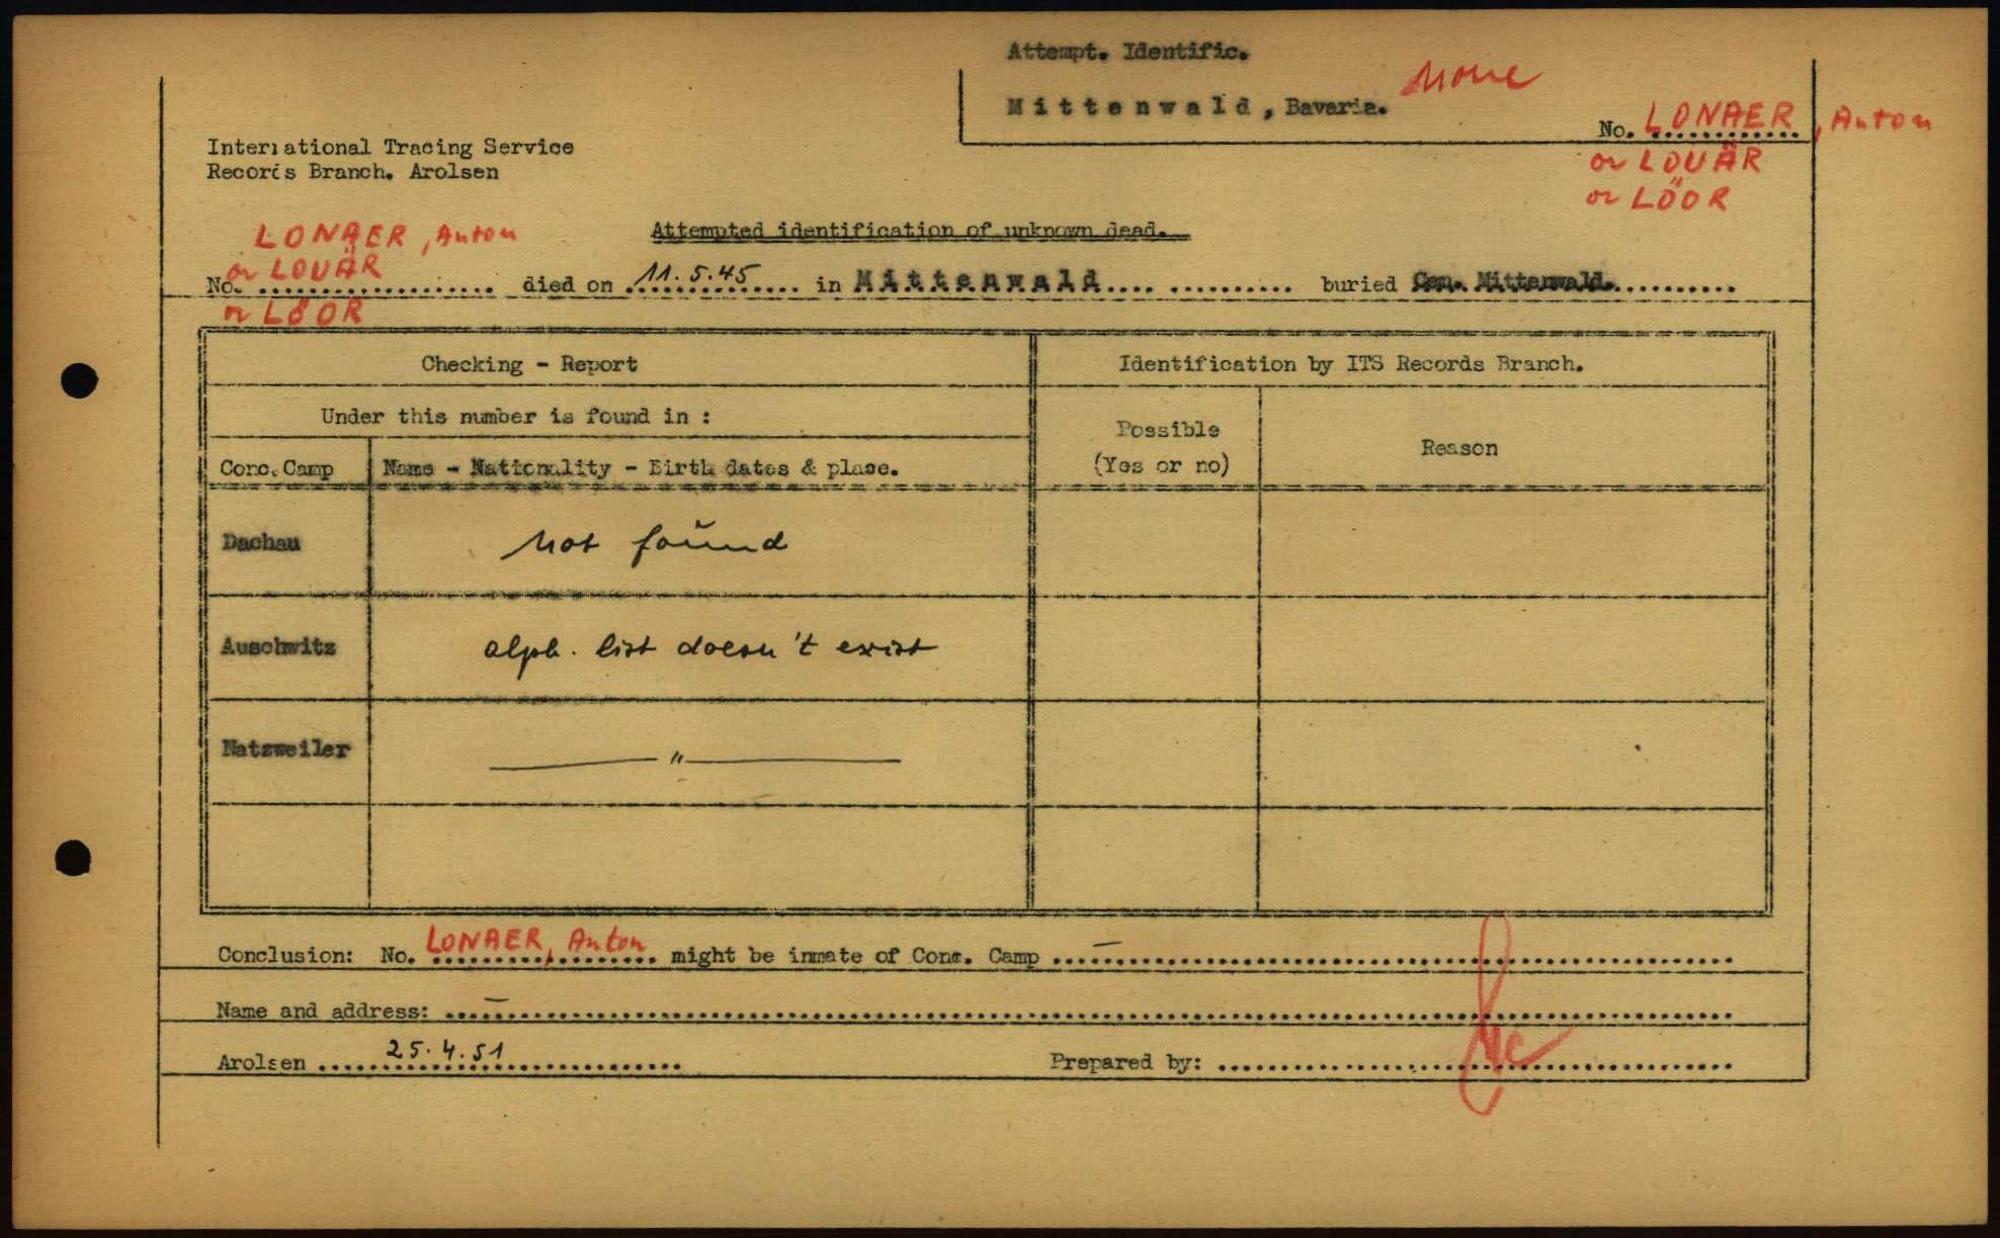 Attempt. Identific.
Mittenwald, Bavaria. None
No. LONAER, Anton
or LOUÄR
or LÖOR
International Tracing Service
Records Branch. Arolsen
Attempted identification of unknown dead.
LONAER, Anton
or LOUÄR
or LÖOR
No. .......... died on 11.5.45 in Mittenwald.... .......... buried Cem. Mittenwald...........
Checking - Report
Identification by ITS Records Branch.
Under this number is found in :
Possible
(Yes or no)
Reason
Conc. Camp Name - Nationality - Birth dates & place.
Dachau not found
Auschwitz alph. list doesn't exist
Natzweiler — " —
Conclusion: No. LONAER, Anton might be inmate of Conc. Camp —
Name and address: —
Arolsen 25.4.51 Prepared by: